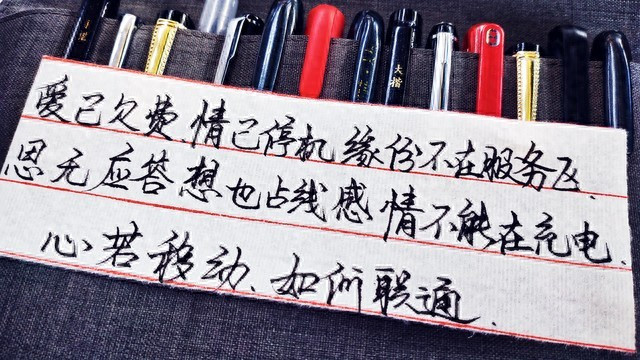 爱已欠费、情已停机、缘份不在服务区、
思无应答、想也占线、感情不能在充电、
心若移动、如何联通、
大楷